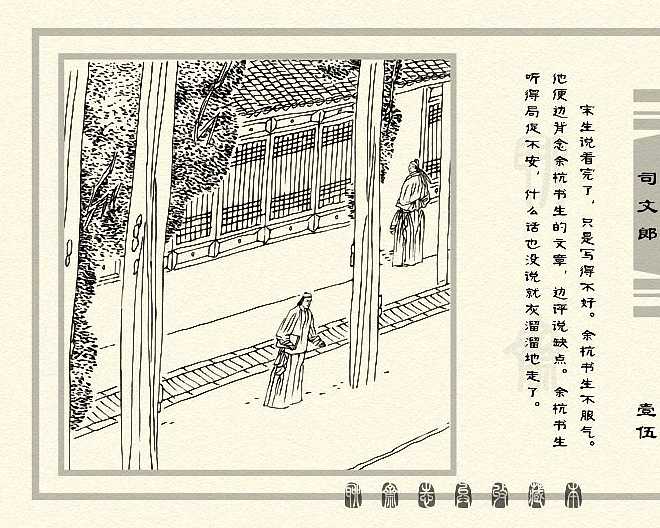 宋生说看完了，只是写得不好。余杭书生不服气。
他便边背念余杭书生的文章，边评说缺点。余杭书生
听得局促不安，什么话也没说就灰溜溜地走了。
司文郎
壹伍